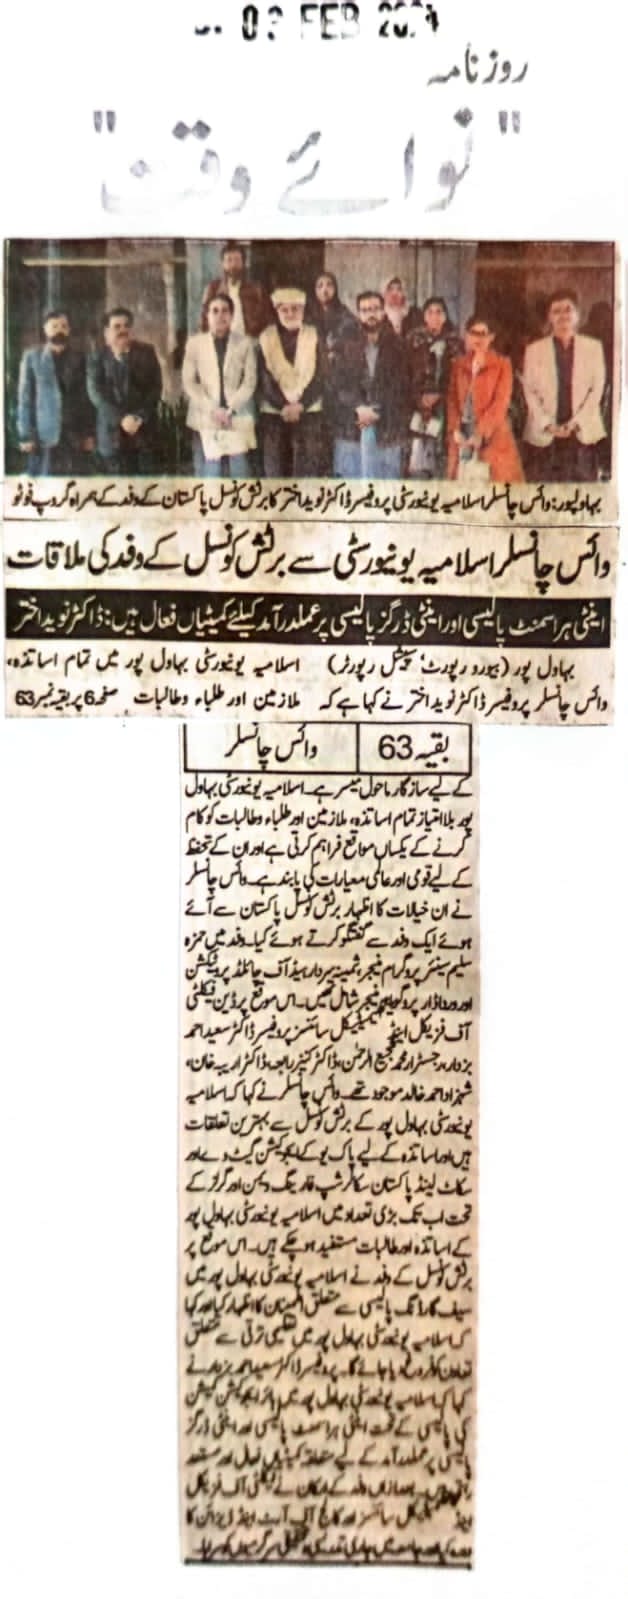 03 FEB 2024
روزنامہ
"نوائے وقت"
بہاولپور: وائس چانسلر اسلامیہ یونیورسٹی پروفیسر ڈاکٹر نوید اختر کا برٹش کونسل پاکستان کے وفد کے ہمراہ گروپ فوٹو
وائس چانسلر اسلامیہ یونیورسٹی سے برٹش کونسل کے وفد کی ملاقات
اینٹی ہراسمنٹ پالیسی اور اینٹی ڈرگز پالیسی پر عملدرآمد کیلئے کمیٹیاں فعال ہیں: ڈاکٹر نوید اختر
بہاول پور (بیورو رپورٹ، سپیشل رپورٹر)
وائس چانسلر پروفیسر ڈاکٹر نوید اختر نے کہا ہے کہ
اسلامیہ یونیورسٹی بہاول پور میں تمام اساتذہ،
ملازمین اور طلباء وطالبات صفحہ 6 پر بقیہ نمبر 63
بقیہ 63 وائس چانسلر
کے لیے سازگار ماحول میسر ہے۔ اسلامیہ یونیورسٹی بہاول
پور بلا امتیاز تمام اساتذہ، ملازمین اور طلباء وطالبات کو کام
کرنے کے یکساں مواقع فراہم کرتی ہے اور ان کے تحفظ
کے لیے قومی اور عالمی معیارات کی پابند ہے۔ وائس چانسلر
نے ان خیالات کا اظہار برٹش کونسل پاکستان سے آئے
ہوئے ایک وفد سے گفتگو کرتے ہوئے کیا۔ وفد میں حمزہ
سلیم سینئر پروگرام منیجر، ثمینہ سردار ہیڈ آف چائلڈ پروٹیکشن
اور منیجر شامل تھیں۔ اس موقع پر ڈین فیکلٹی
آف فزیکل اینڈ میتھمیٹیکل سائنسز پروفیسر ڈاکٹر سعید احمد
بزدار، رجسٹرار محمد شجیع الرحمن، ڈاکٹر کنیز رابعہ، ڈاکٹر اریبہ خان،
شہزاد احمد خالد موجود تھے۔ وائس چانسلر نے کہا کہ اسلامیہ
یونیورسٹی بہاول پور کے برٹش کونسل سے بہترین تعلقات
ہیں اور اساتذہ کے لیے پاک یوکے ایجوکیشن گیٹ وے اور
سکاٹ لینڈ پاکستان سکالرشپ فار ینگ ویمن اور گرلز کے
تحت اب تک بڑی تعداد میں اسلامیہ یونیورسٹی بہاول پور
کے اساتذہ اور طالبات مستفید ہو چکے ہیں۔ اس موقع پر
برٹش کونسل کے وفد نے اسلامیہ یونیورسٹی بہاول پور میں
سیف گارڈنگ پالیسی سے متعلق اطمینان کا اظہار کیا اور کہا
کہ اسلامیہ یونیورسٹی بہاول پور میں تعلیمی ترقی سے متعلق
تعاون کو فروغ دیا جائے گا۔ پروفیسر ڈاکٹر سعید احمد بزدار نے
کہا کہ اسلامیہ یونیورسٹی بہاول پور میں ہائر ایجوکیشن کمیشن
کی پالیسی کے تحت اینٹی ہراسمنٹ پالیسی اور اینٹی ڈرگز
پالیسی پر عملدرآمد کے لیے متعلقہ کمیٹیاں فعال اور مستعد
بعد ازاں وفد کے ارکان نے فیکلٹی آف فزیکل
اینڈ میتھمیٹیکل سائنسز اور کالج آف آرٹ اینڈ ڈیزائن کا
دورہ کیا اور جامعہ میں جاری سرگرمیوں کو سراہا۔